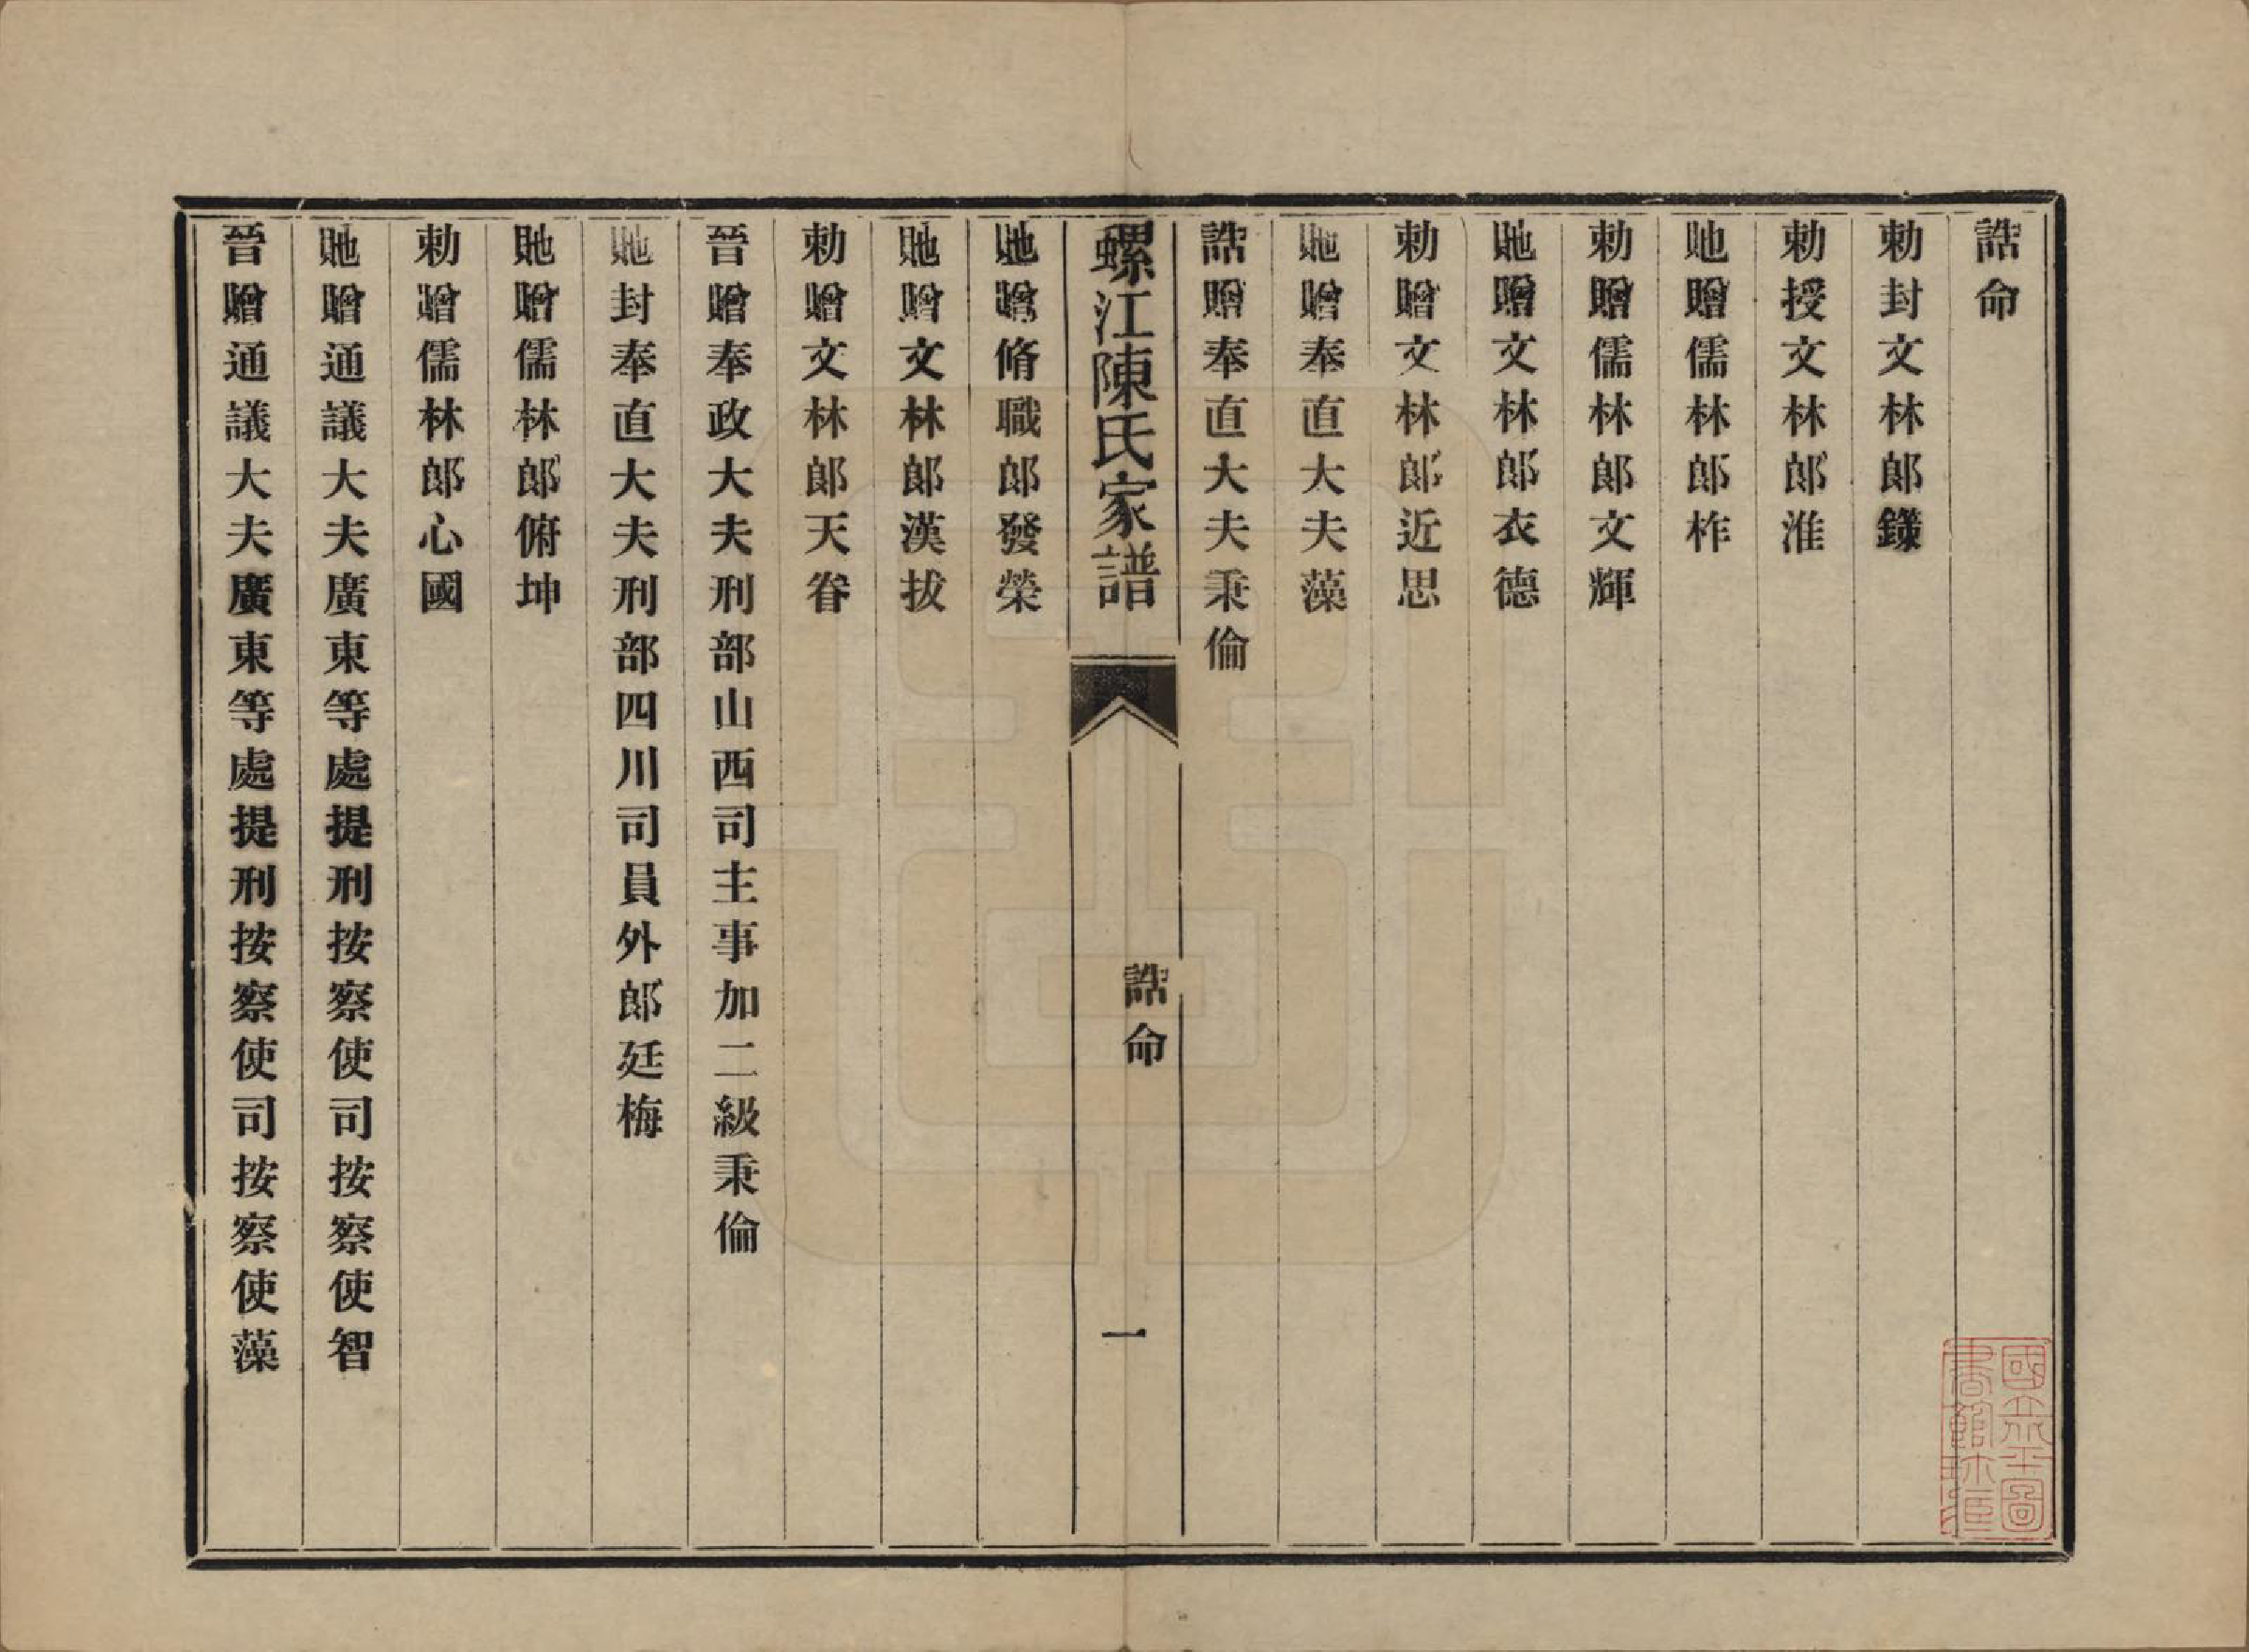 誥命
勅封文林郎鑅
勅授文林郎淮
貤贈儒林郎柞
勅贈儒林郎文輝
貤贈文林郎衣德
勅贈文林郎近思
貤贈奉直大夫藻
誥贈奉直大夫秉倫
螺江陳氏家譜
誥命
一
貤贈脩職郎發榮
貤贈文林郎漢拔
勅贈文林郎天眷
晉贈奉政大夫刑部山西司主事加二級秉倫
貤封奉直大夫刑部四川司員外郎廷梅
貤贈儒林郎俯坤
勅贈儒林郎心國
貤贈通議大夫廣東等處提刑按察使司按察使智
晉贈通議大夫廣東等處提刑按察使司按察使藻
國立北平圖
書館珍藏